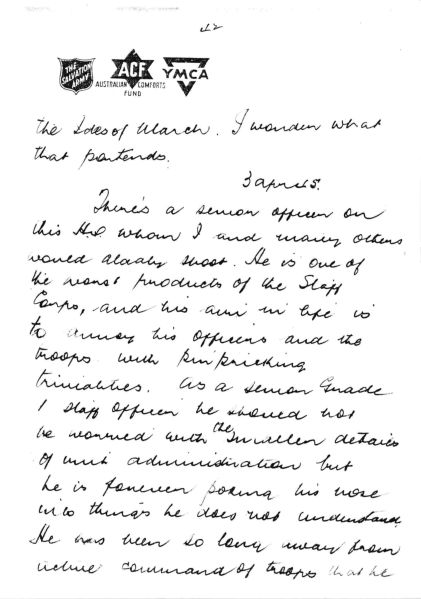 42
THE
SALVATION
ARMY
ACF
AUSTRALIAN COMFORTS
FUND
YMCA
the Ides of March. I wonder what
that portends.
3 April 45.
There's a senior officer on
this H.Q whom I and many others
would gladly shoot. He is one of
the worst products of the Staff
Corps, and his aim in life is
to annoy his officers and the
troops with pin pricking
trivialities. As a senior Grade
1 staff officer he should not
be worried with the smaller details
of unit administration but
he is forever poking his nose
into things he does not understand.
He has been so long away from
active command of troops that he